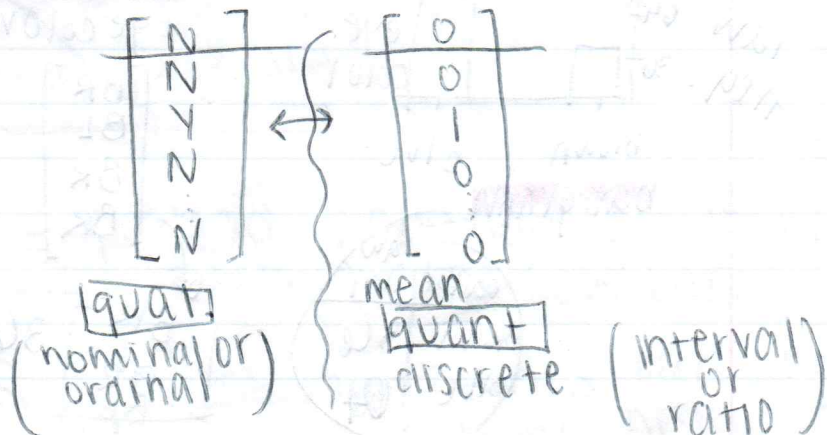 N
N
Y
N
⋮
N
qual.
(nominal or
ordinal)
↔
0
0
1
0
⋮
0
mean
quant
discrete
(interval
or
ratio)